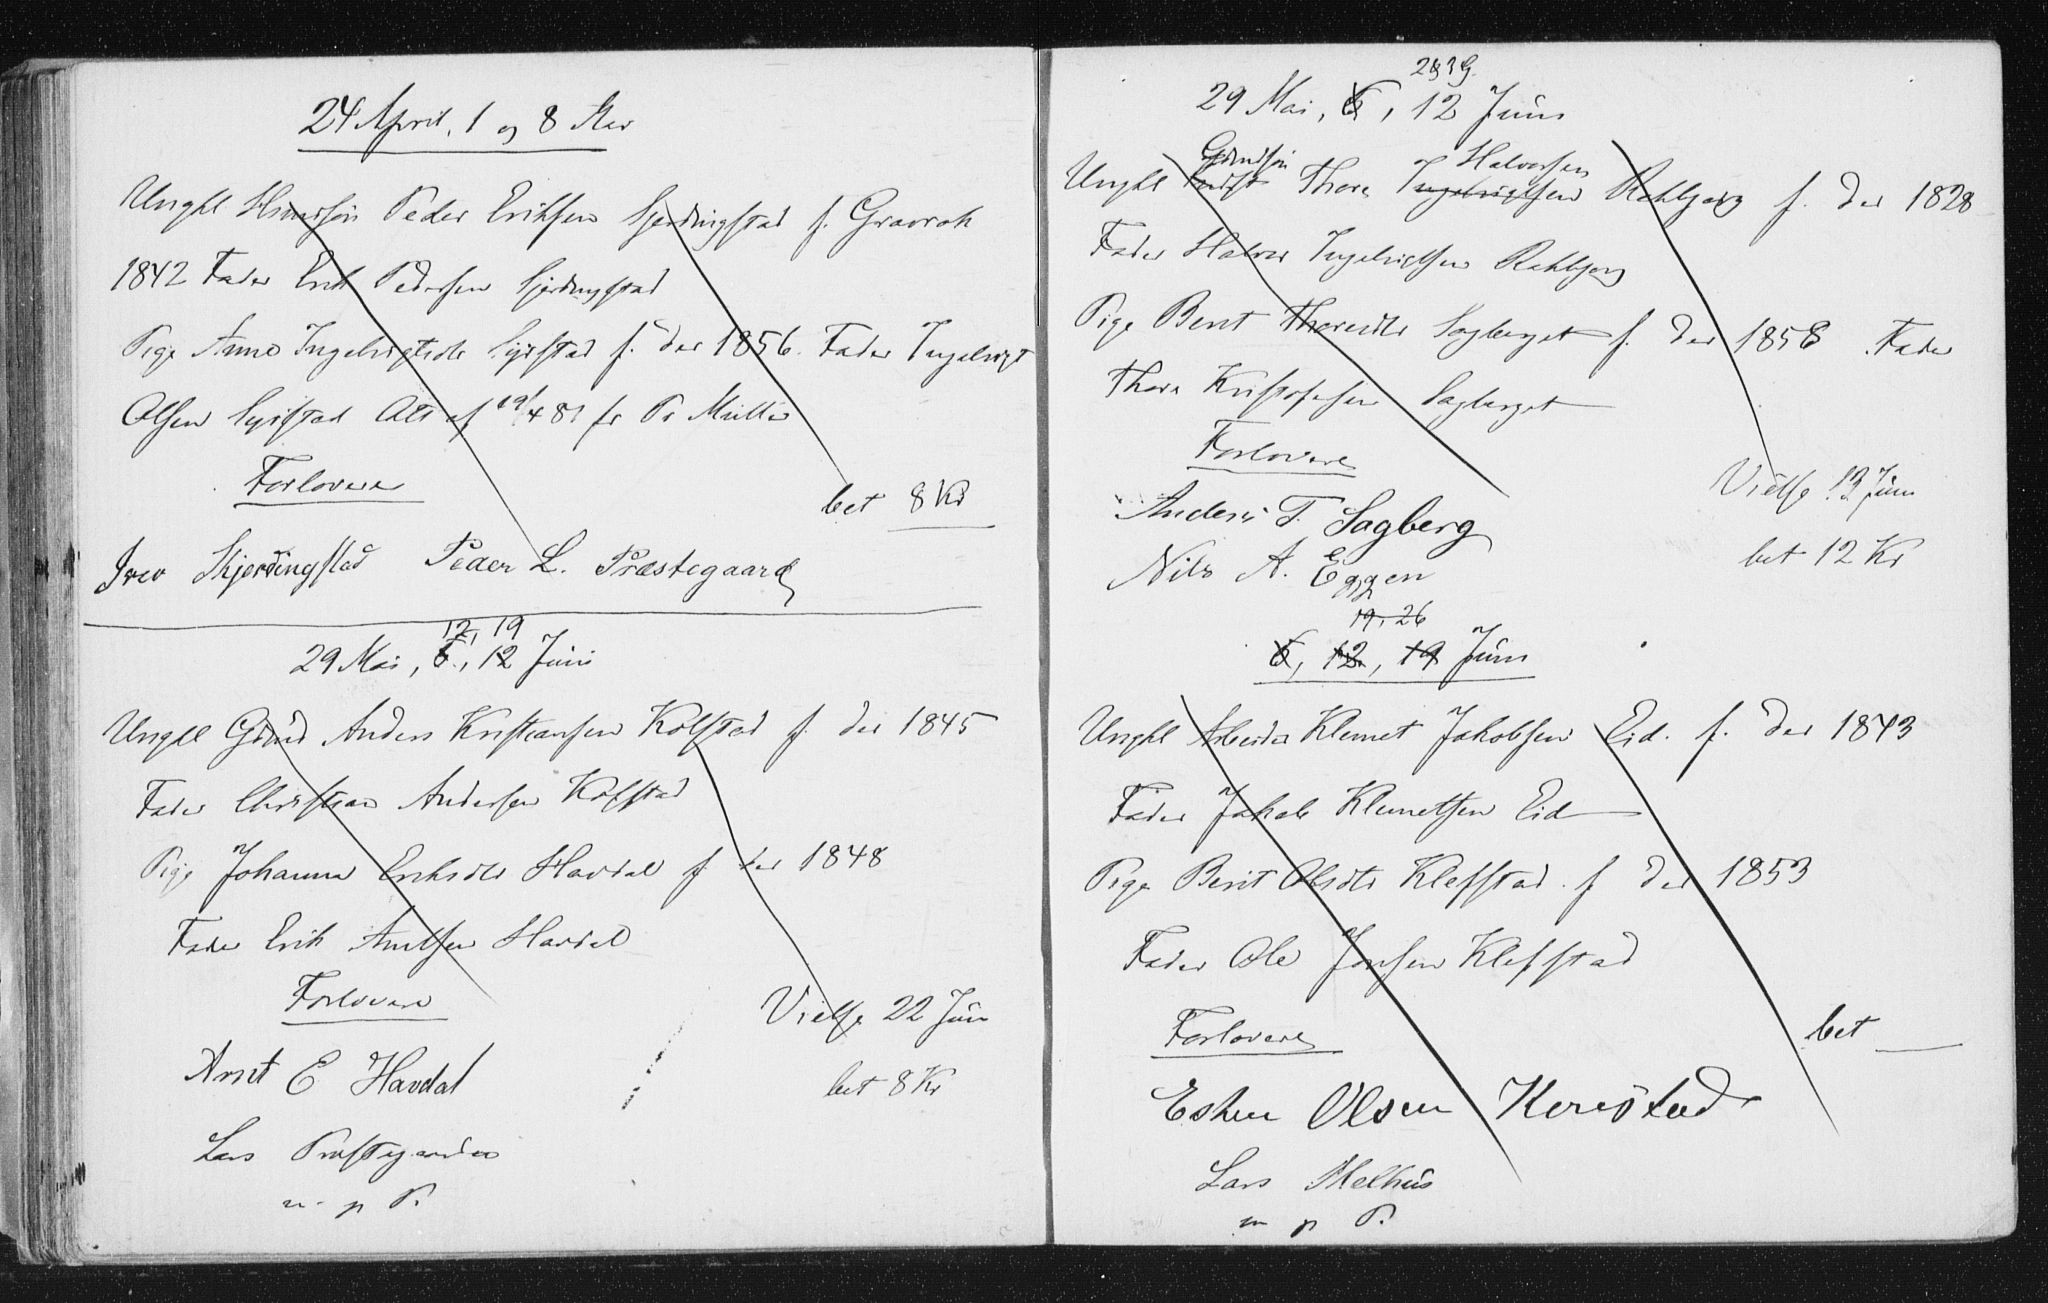 24 April, 1 og 8 Mai
Ungkl Peder Eriksen f. Gravrok
1842 Fader Erik Pedersen
Pige Anne Ingebrigtsdtr f. der 1856. Fader Ingebrigt
Olsen Att af 19/4 81 fr Pr Müller
Forlovere
bet 8 Kr
Skjerdingstad Peder L. Præstegaard
12, 19
29 Mai, 6, 12 Juni
Ungkl Grmd Anders Kristiansen Kolstad f. der 1845
Fader Christian Andersen Kolstad
Pige Johanna Eriksdtr Havdal f der 1848
Fader Erik Arntsen Havdal
Forlovere
Vielse 22 Juni
Arnt E Havdal
bet 8 Kr
Lars Præstegaarden
m. p. P.
2 og 3 G.
29 Mai, 6, 12 Juni
Halvorsen
Ungkl Thore Ingebrigtsen Rekbjerg f. der 1828
Fader Halvor Ingebrigtsen Rekbjerg
Pige Berit Thoresdtr Sagberget f. der 1858 Fader
Thore Kristofersen Sagberget
Forlovere
Vielse 13 Juni
Anders T. Sagberg
bet 12 Kr
Nils A. Eggen
19, 26
6, 12, 19 Juni
Ungkl Arbeider Klemet Jakobsen Eid. f. der 1843
Fader Jakob Klemetsen Eid
Pige Berit Olsdtr Klefstad. f der 1853
Fader Ole Jonsen Klefstad
Forlovere
bet —
Esten Olsen Kerestad
Lars Melhus
m p P.